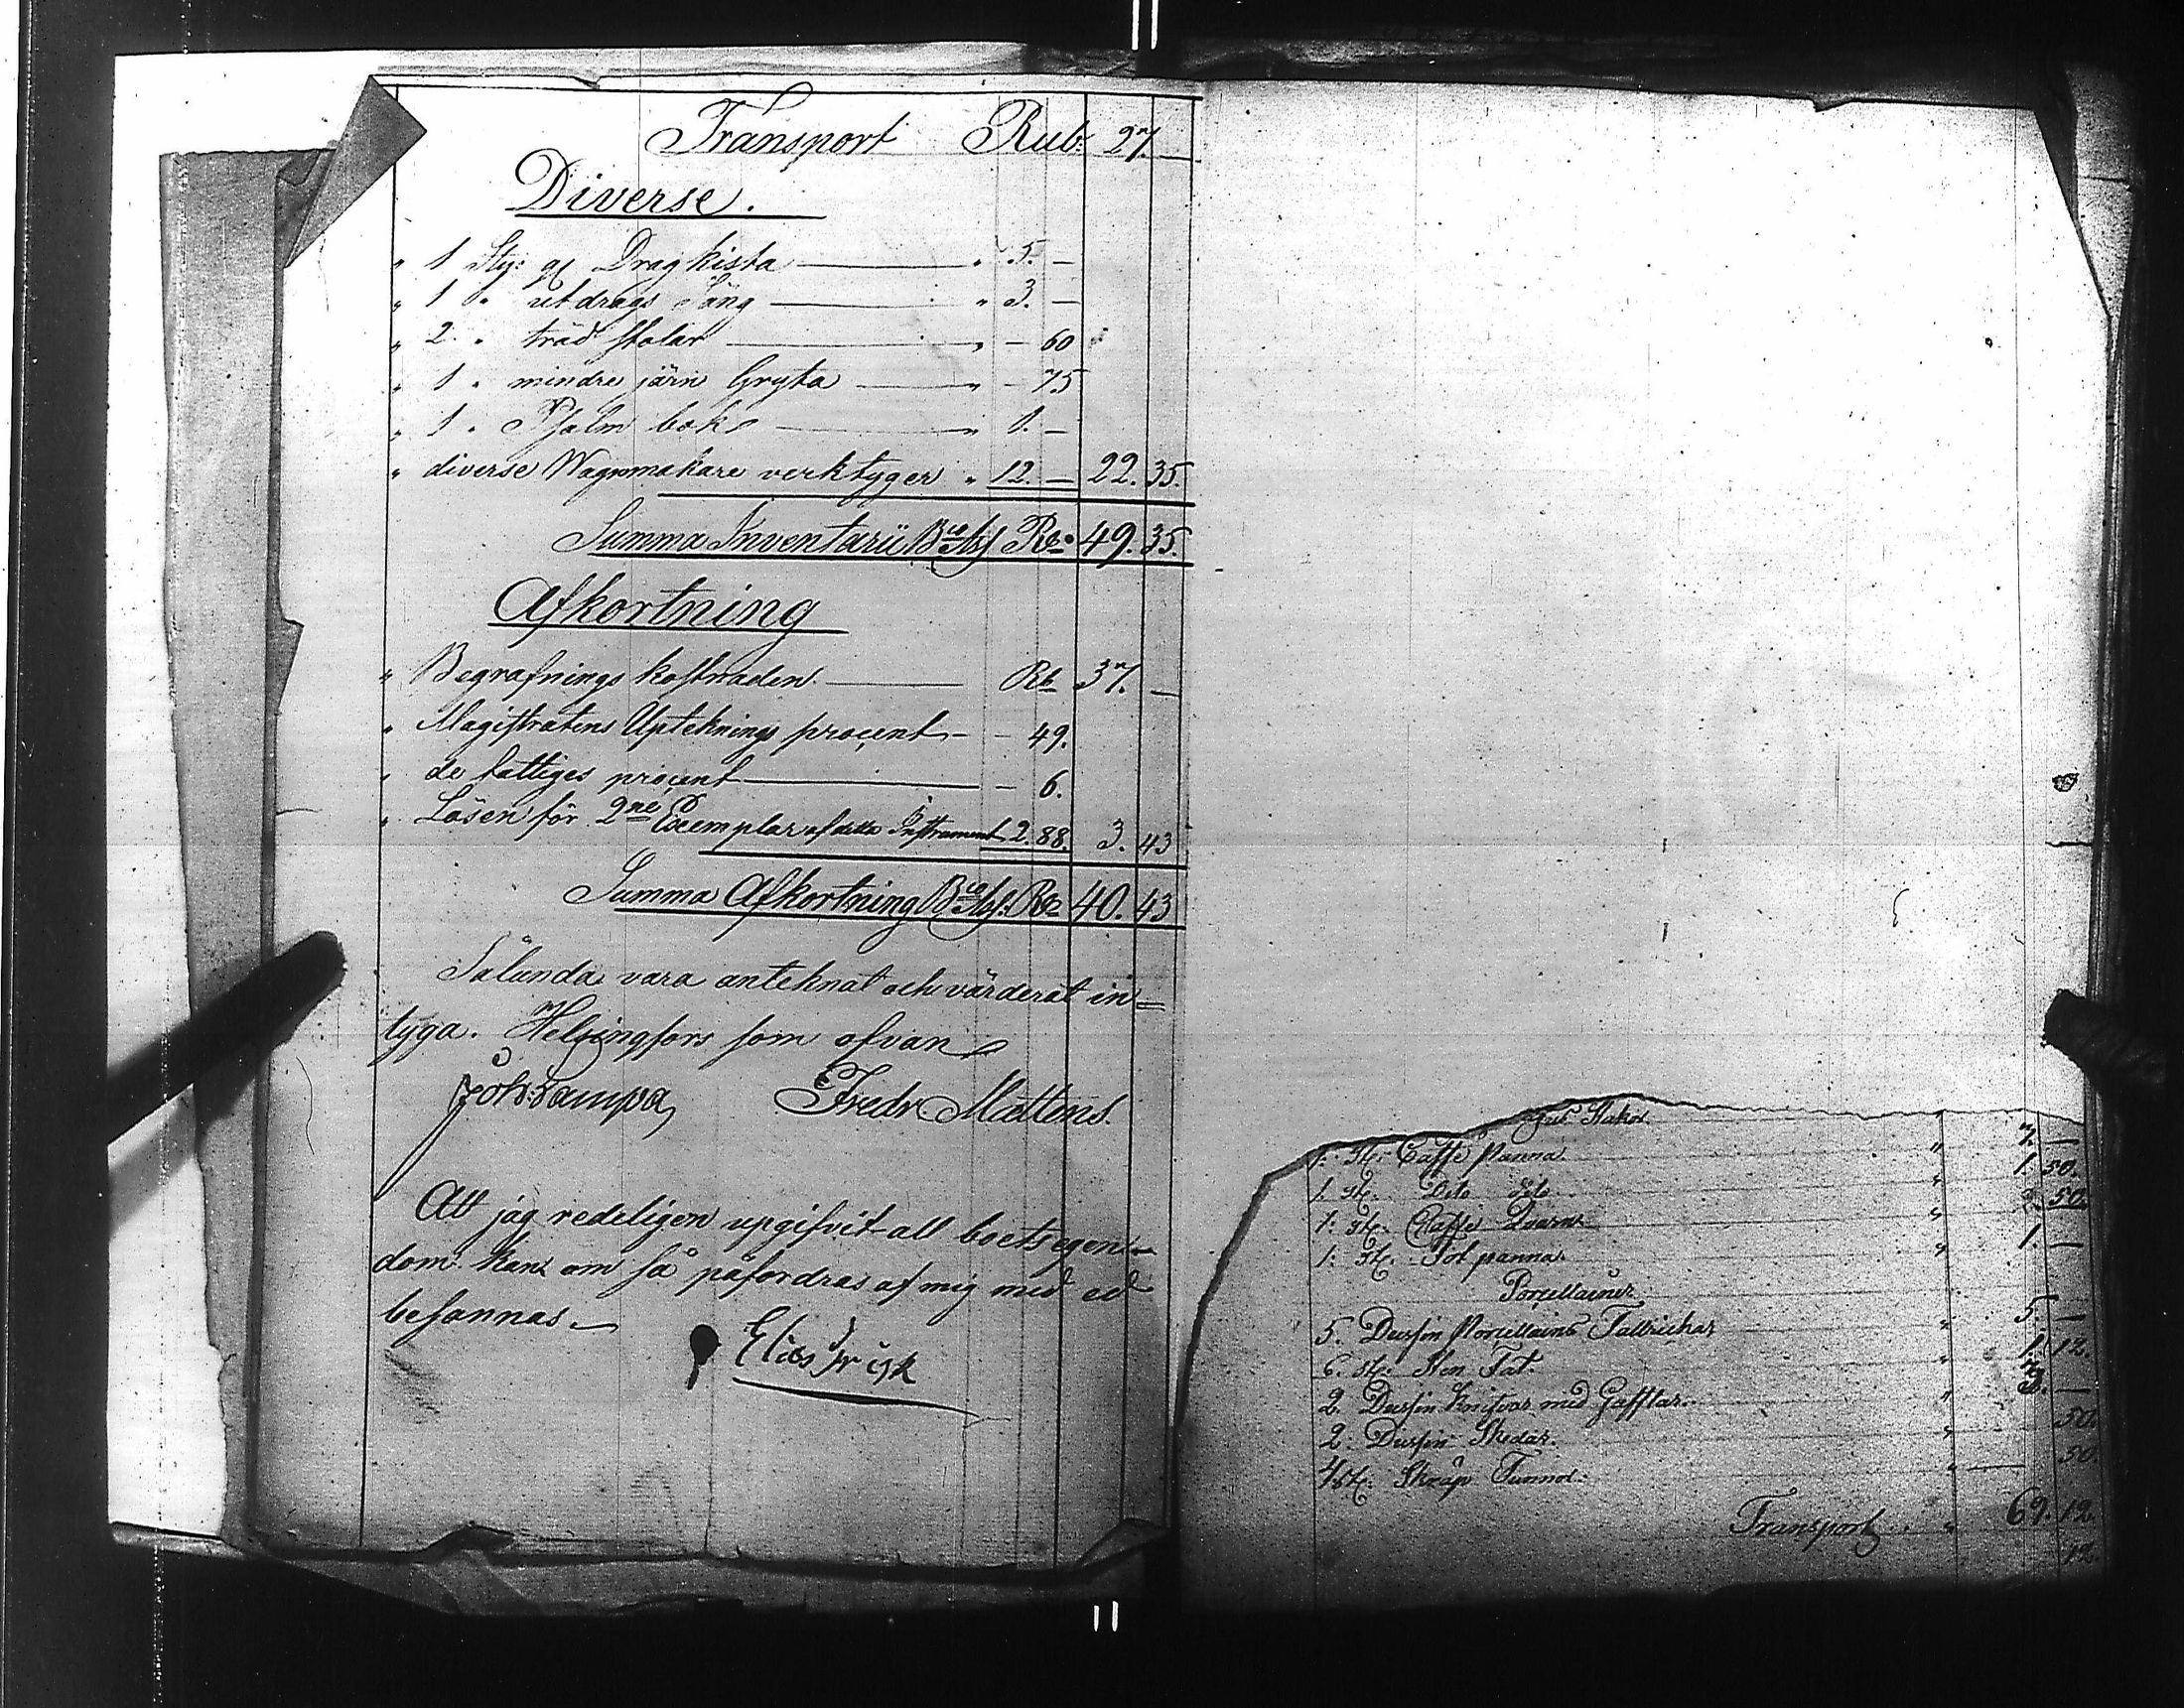 Transport Rub: 27. —
Diverse.
" 1 Sty: Dragkista — " 5. —
" 1 " utdrags Säng — " 3. —
" 2. " träd stolar — " — 60
" 1 " mindre järn Gryta — " — 75
" 1 " Psalm bok — " 1. —
" diverse Wagnmakare verktyger " 12. — 22. 35.
Summa Inventarii Bco Ass Rb: 49. 35.
Afkortning
" Begrafnings kostnaden — Rb 37. —
" Magistratens Uptekning procent — — 49.
" de fattiges procent — — 6.
" Lösen för 2ne Exemplar af detta Instrument 2. 88. 3. 43
Summa Afkortning Bco Ass: Rb 40. 43
Sålunda vara anteknat och värderat in=
tyga. Helsingfors som ofvan
Joh: Lampa Fredr Mattens.
Att jag redeligen upgifvit all boets egen=
dom kan om så påfordras af mig med ed
besannas.
Elias Frisk
Stakar 7. —
1: St: Caffe Panna " 1. 50.
1. St: Dito Dito " 2. 50.
1: St: Caffe Qvarn " 1. —
1: St: panna "
Porcellainer
5. Dussin Porcellains Tallrickar " 5. —
6. St: Sten Fat " 1. 12.
2. Dussin Knifvar med Gafflar " 3. —
2. Dussin Skedar. " 50.
4 St: Skräp Tunnor: " — 50.
Transport " 69. 12.
12.